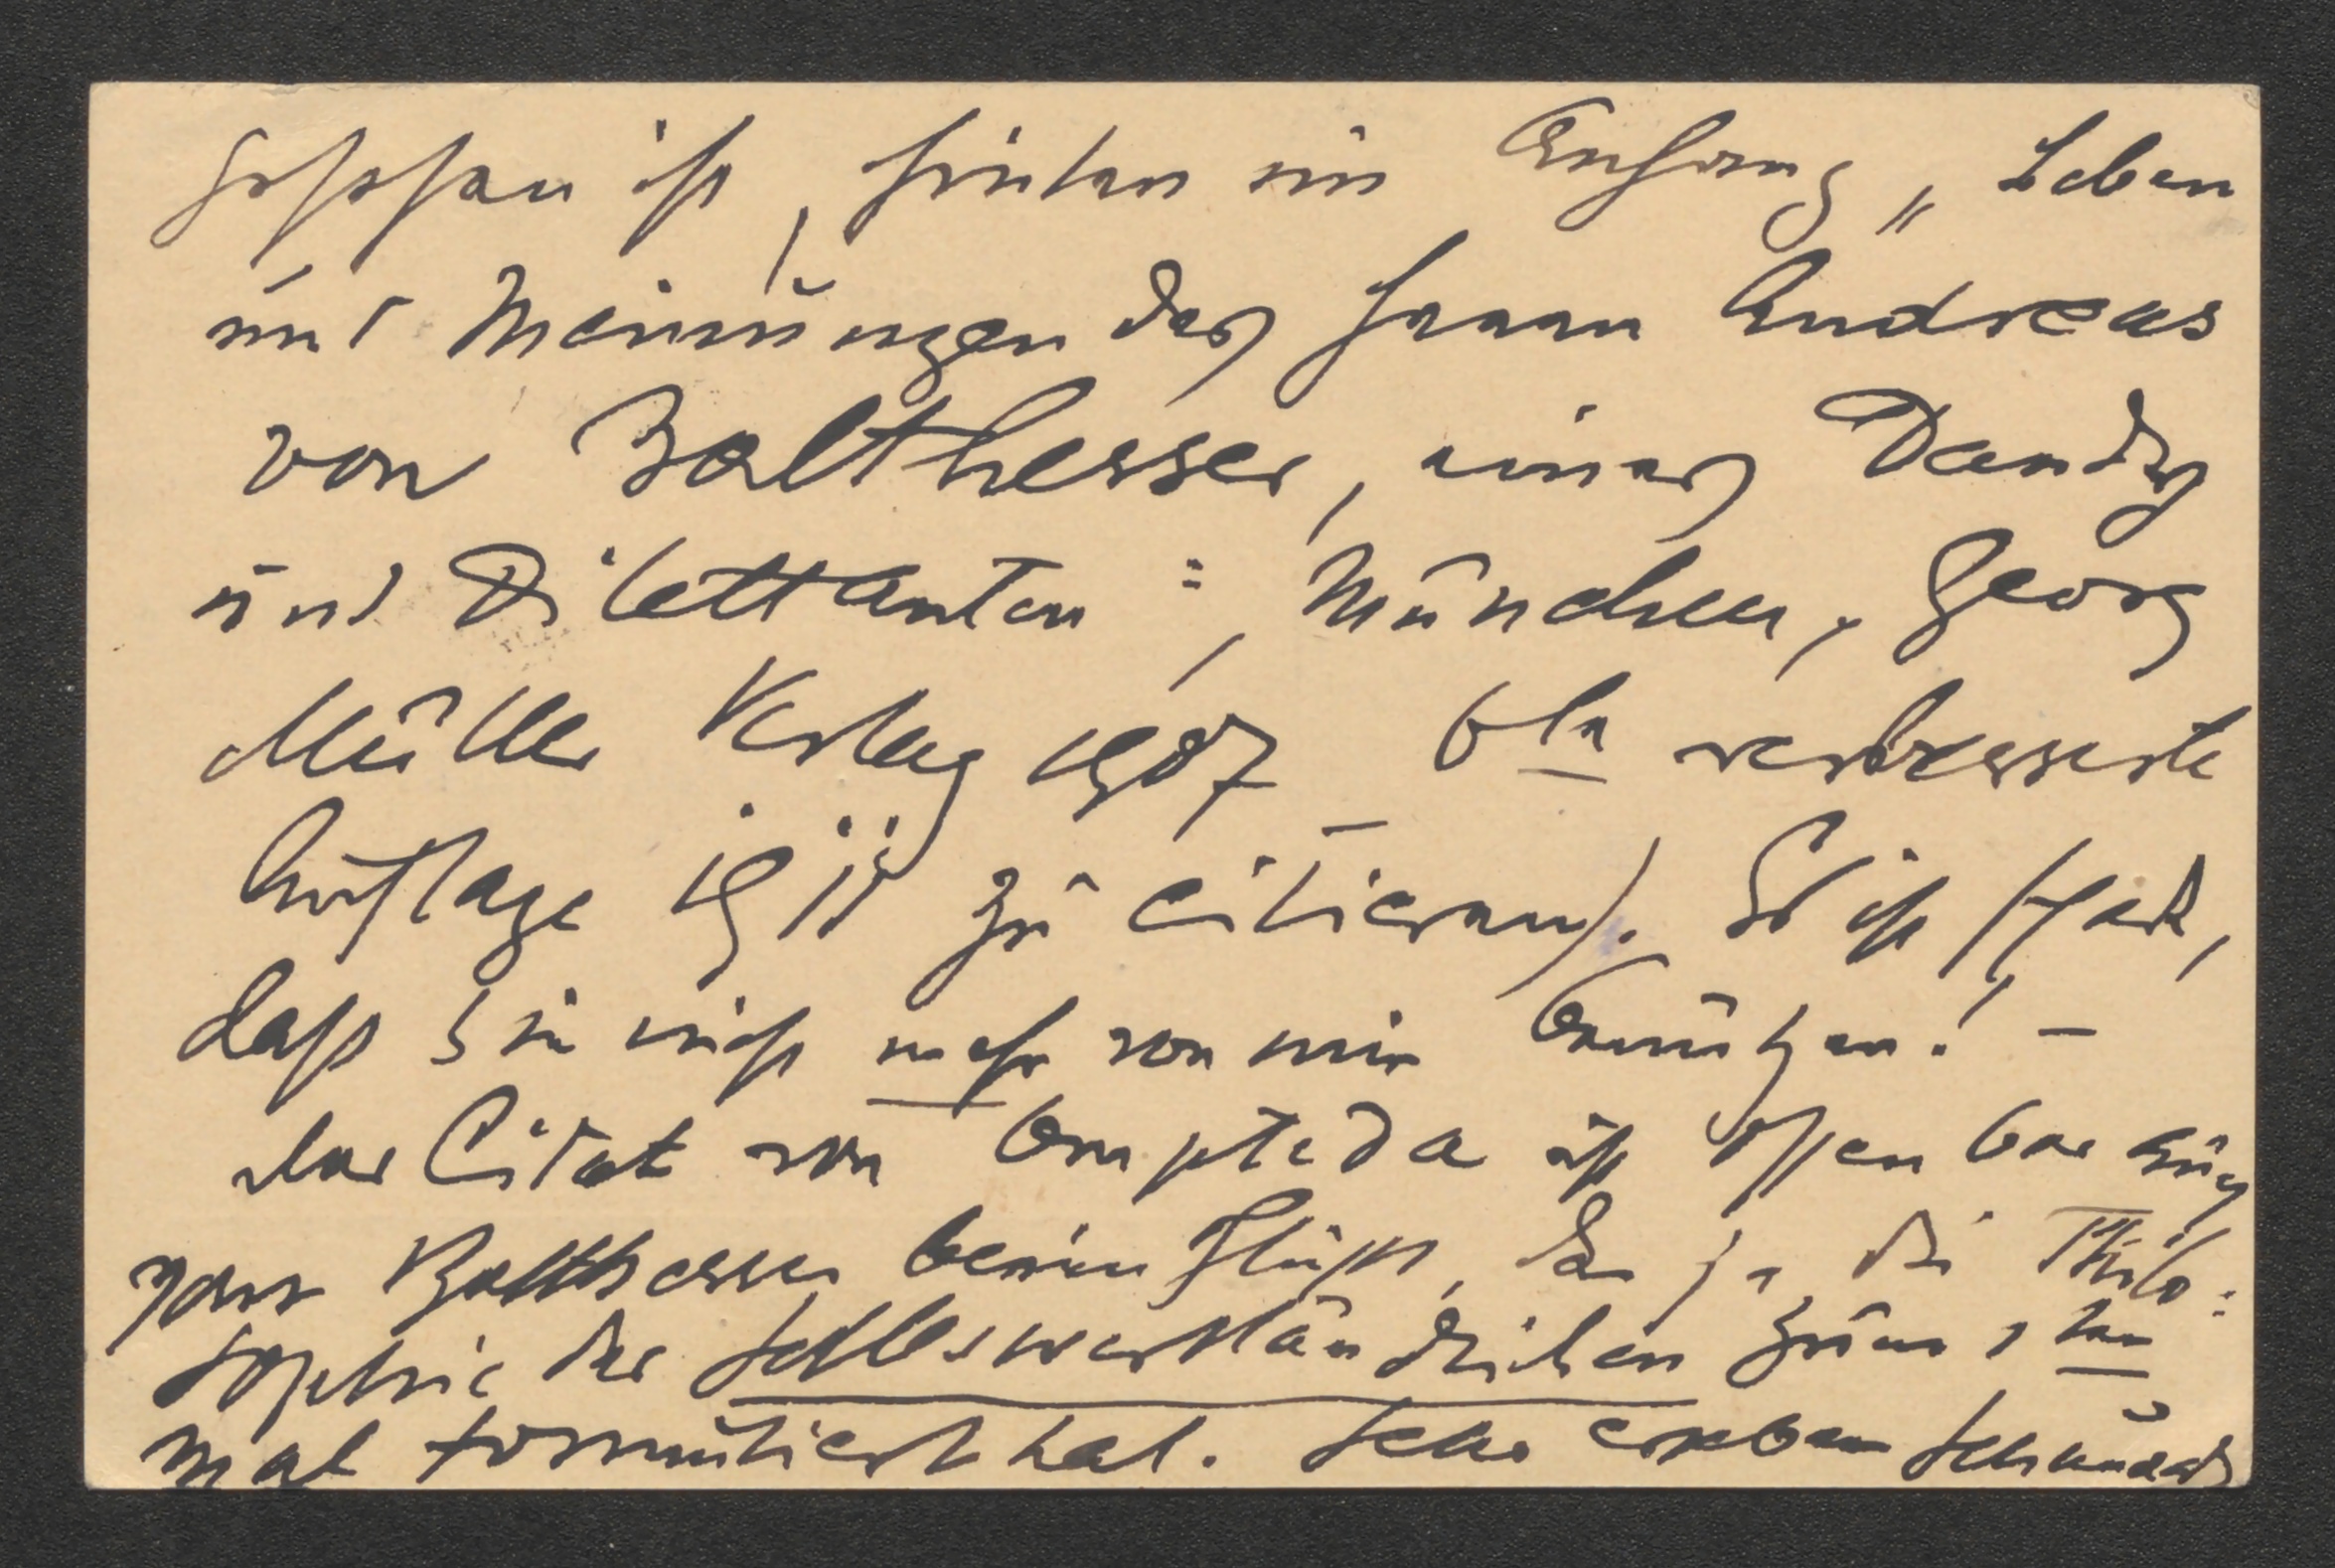 geschehen ist, hinten im Anhang „Leben
und Meinungen des Herrn Andreas
von Balthesser, eines Dandy
und Dilettanten", München, Georg
Müller Verlag 1907 6te verbesserte
Auflage 1911 zu citieren). Es ist stark,
daß Sie nicht mehr von mir benützen! –
das Citat von Ompteda ist offenbar aus
Balthesser beeinflußt, da ja die Philo=
sophie der Selbstverständlichen zum 1ten
mal formuliert hat. Sehr ergeben Schaukal